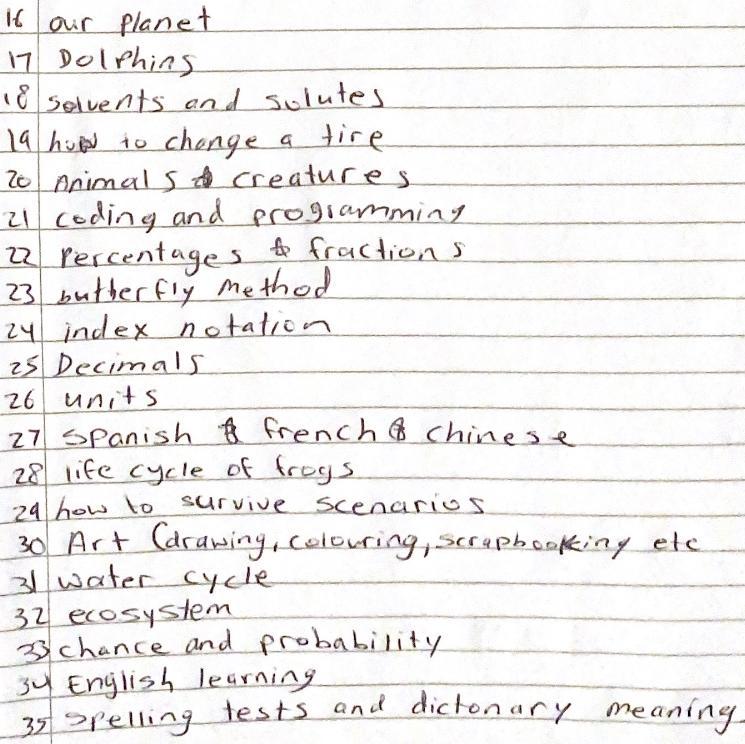 16 our planet
17 Dolphins
18 solvents and solutes
19 how to change a tire
20 Animals & creatures
21 coding and programming
22 Percentages & fractions
23 butterfly method
24 index notation
25 Decimals
26 units
27 Spanish & french & chinese
28 life cycle of frogs
29 how to survive scenarios
30 Art (drawing, colouring, scrapbooking etc
31 water cycle
32 ecosystem
33 chance and probability
34 English learning
35 spelling tests and dictonary meaning